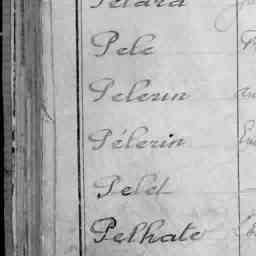 Pelard
Pele
Pelerin
Pélerin
Pelet
Pelhate